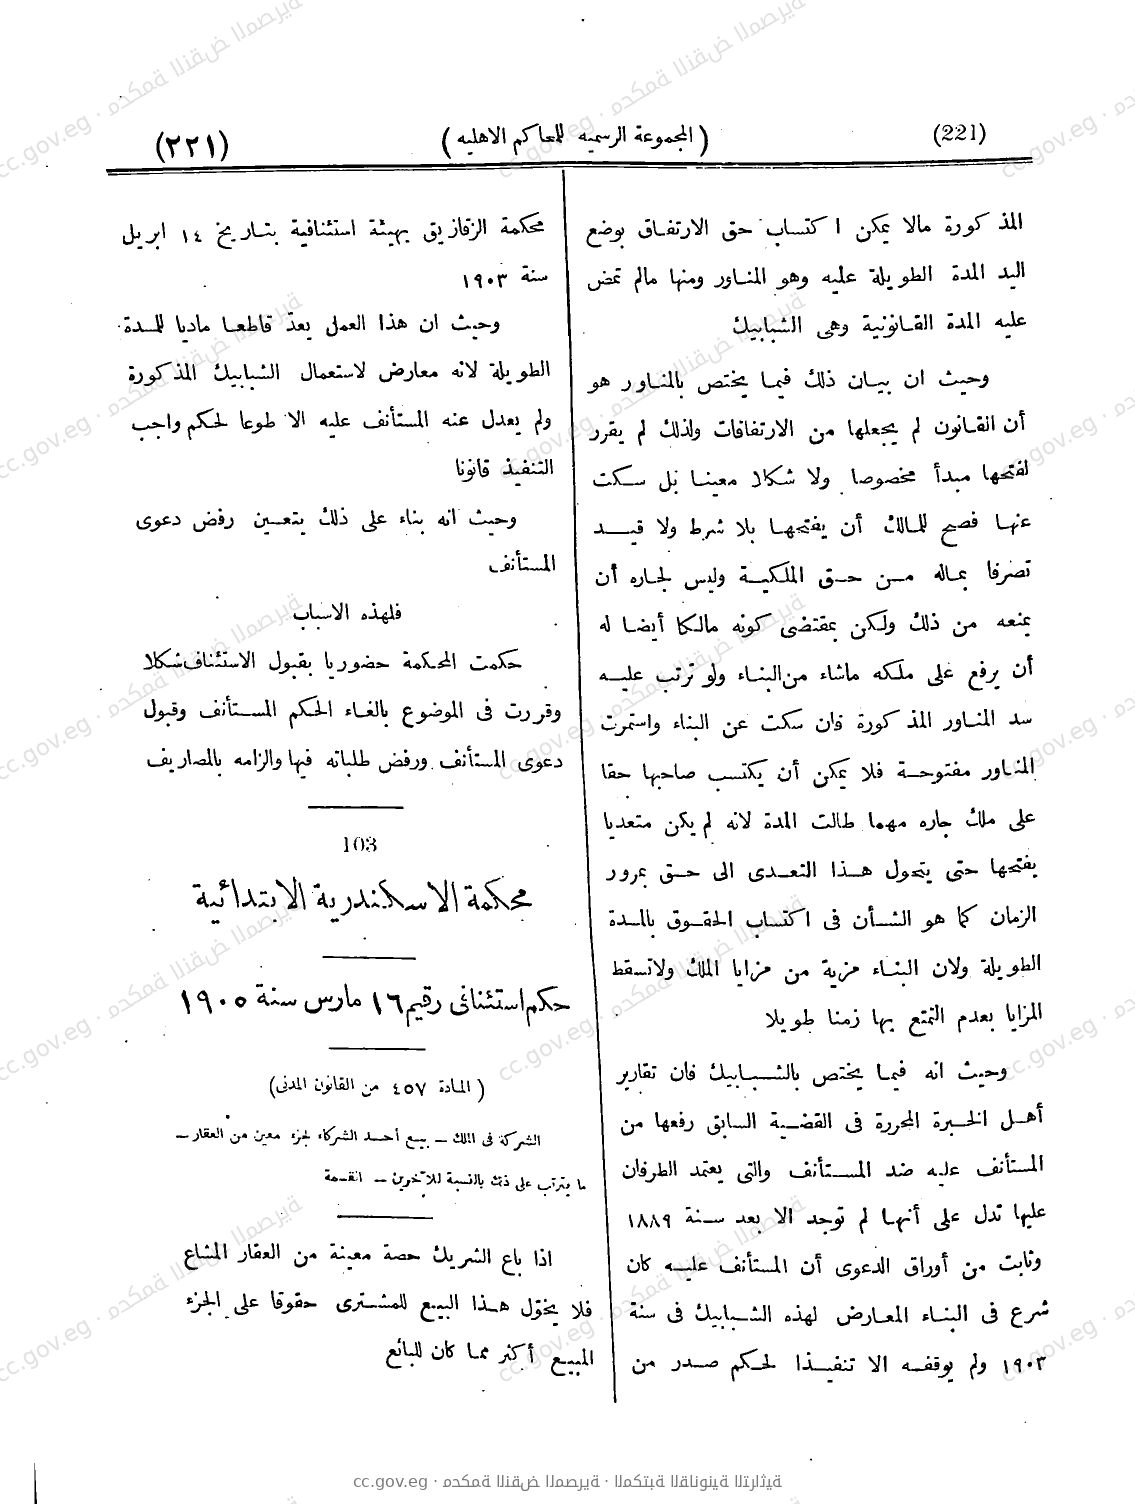 (221)
(المجموعة الرسميه للمحاكم الاهليه)
(٢٢١)
المذكورة مالا يمكن اكتساب حق الارتفاق بوضع
اليد المدة الطويلة عليه وهو المناور ومنها مالم تمض
عليه المدة القانونية وهى الشبابيك
وحيث ان بيان ذلك فيما يختص بالمناور هو
أن القانون لم يجعلها من الارتفاقات ولذلك لم يقرر
لفتحها مبدأ مخصوصا ولا شكلا معينا بل سكت
عنها فصح للمالك أن يفتحها بلا شرط ولا قيد
تصرفا بماله من حق الملكية وليس لجاره أن
يمنعه من ذلك ولكن بمقتضى كونه مالكا أيضا له
أن يرفع على ملكه ماشاء من البناء ولو ترتب عليه
سد المناور المذكورة فان سكت عن البناء واستمرت
المناور مفتوحة فلا يمكن أن يكتسب صاحبها حقا
على ملك جاره مهما طالت المدة لانه لم يكن متعديا
بفتحها حتى يتحول هذا التعدى الى حق بمرور
الزمان كما هو الشأن فى اكتساب الحقوق بالمدة
الطويلة ولان البناء مزية من مزايا الملك ولاتسقط
المزايا بعدم التمتع بها زمنا طويلا
وحيث انه فيما يختص بالشبابيك فان تقارير
أهل الخبرة المحررة فى القضية السابق رفعها من
المستأنف عليه ضد المستأنف والتى يعتمد الطرفان
عليها تدل على أنها لم توجد الا بعد سنة ١٨٨٩
وثابت من أوراق الدعوى أن المستأنف عليه كان
شرع فى البناء المعارض لهذه الشبابيك فى سنة
١٩٠٣ ولم يوقفه الا تنفيذا لحكم صدر من
محكمة الزقازيق بهيئة استئنافية بتاريخ ١٤ ابريل
سنة ١٩٠٣
وحيث ان هذا العمل يعدّ قاطعا ماديا للمدة
الطويلة لانه معارض لاستعمال الشبابيك المذكورة
ولم يعدل عنه المستأنف عليه الا طوعا لحكم واجب
التنفيذ قانونا
وحيث انه بناء على ذلك يتعين رفض دعوى
المستأنف
فلهذه الاسباب
حكمت المحكمة حضوريا بقبول الاستئناف شكلا
وقررت فى الموضوع بالغاء الحكم المستأنف وقبول
دعوى المستأنف ورفض طلباته فيها والزامه بالمصاريف
103
محكمة الاسكندرية الابتدائية
حكم استئنافى رقيم ١٦ مارس سنة ١٩٠٥
(المادة ٤٥٧ من القانون المدنى)
الشركة فى الملك – بيع أحد الشركاء لجزء معين من العقار –
ما يترتب على ذلك بالنسبة للآخرين – القسمة
اذا باع الشريك حصة معينة من العقار المشاع
فلا يخوّل هذا البيع للمشترى حقوقا على الجزء
المبيع أكثر مما كان للبائع
cc.gov.eg · محكمة النقض المصرية · المكتبة القانونية التراثية